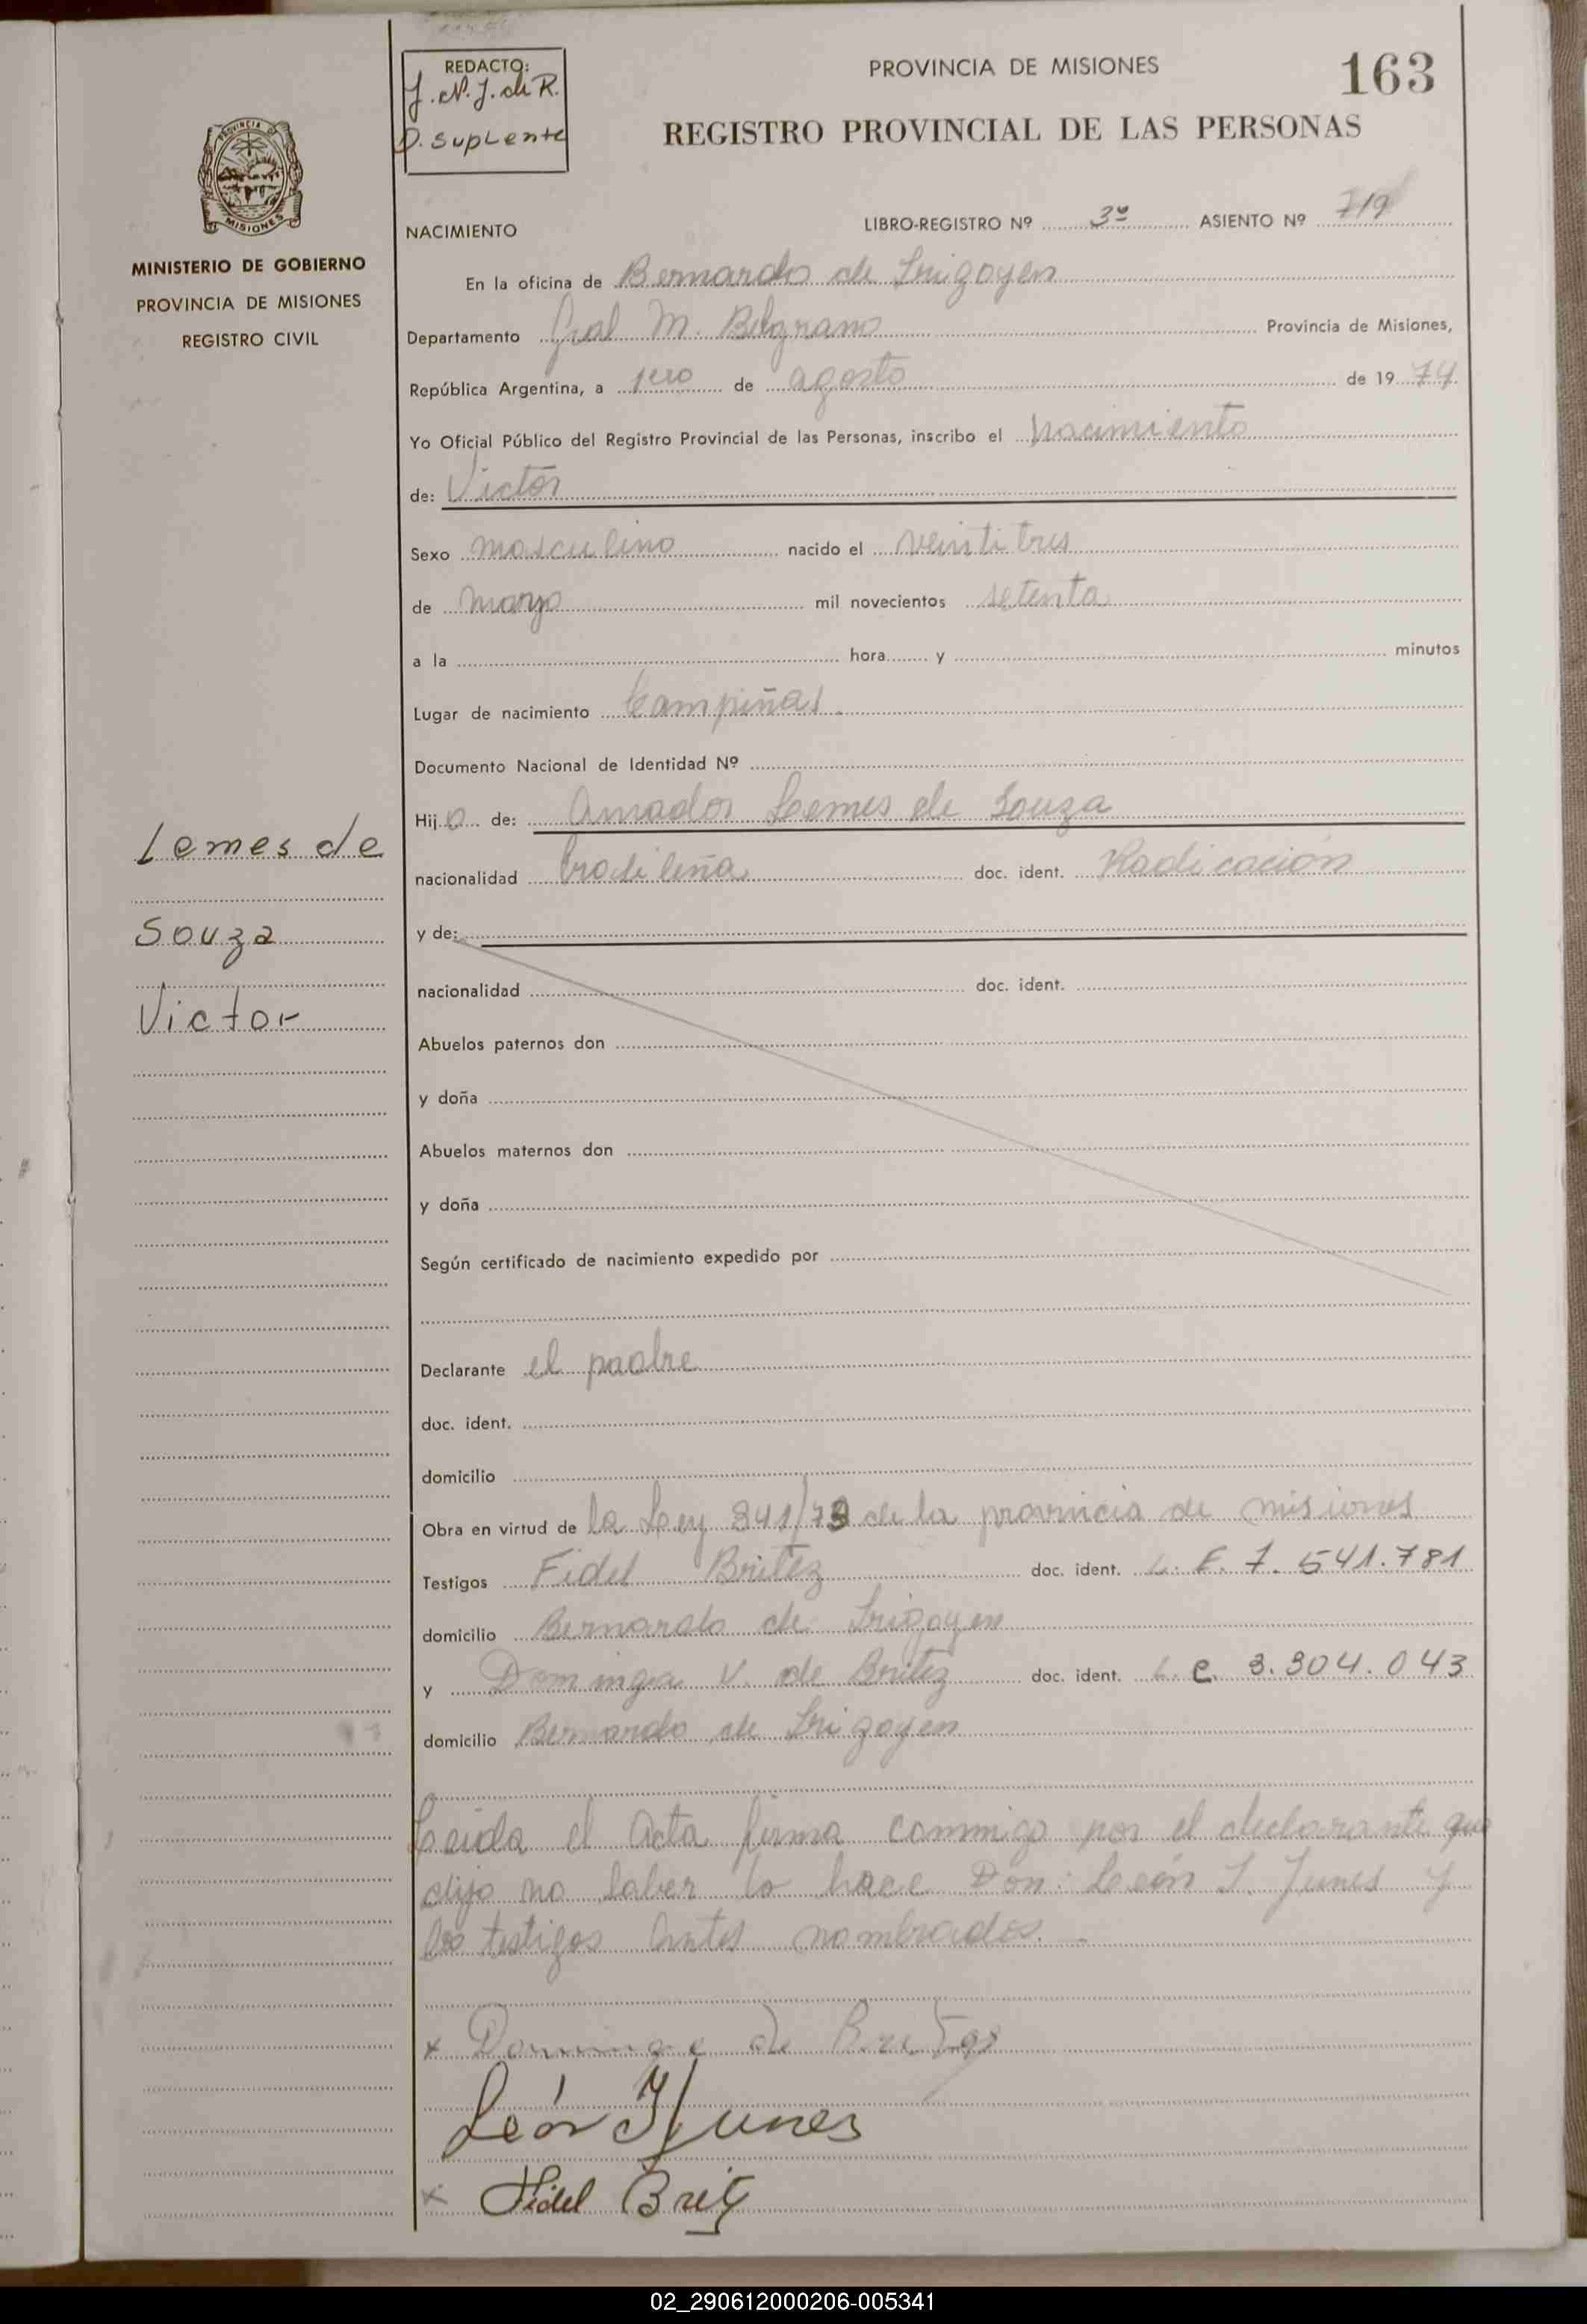 REDACTO:
J. N. J. de R.
D. Suplente
PROVINCIA DE MISIONES
163
REGISTRO PROVINCIAL DE LAS PERSONAS
PROVINCIA DE
MISIONES
MINISTERIO DE GOBIERNO
PROVINCIA DE MISIONES
REGISTRO CIVIL
NACIMIENTO
LIBRO-REGISTRO Nº 3º ASIENTO Nº 719
En la oficina de Bernardo de Irigoyen
Departamento Gral M. Belgrano Provincia de Misiones,
República Argentina, a 1ero de agosto de 1974
Yo Oficial Público del Registro Provincial de las Personas, inscribo el nacimiento
de: Victor
Sexo masculino nacido el veintitres
de marzo mil novecientos setenta
a la hora y minutos
Lugar de nacimiento Campiñas
Documento Nacional de Identidad Nº
Hijo de: Amador Lemes de Souza
nacionalidad brasileña doc. ident. Radicación
y de:
nacionalidad doc. ident.
Abuelos paternos don
y doña
Abuelos maternos don
y doña
Según certificado de nacimiento expedido por
Lemes de
Souza
Victor
Declarante el padre
doc. ident.
domicilio
Obra en virtud de la Ley 341/73 de la provincia de misiones
Testigos Fidel Britez doc. ident. L. E. 7.541.781
domicilio Bernardo de Irigoyen
y Dominga V. de Britez doc. ident. L. C. 3.304.043
domicilio Bernardo de Irigoyen
Leida el Acta firma conmigo por el declarante que
dijo no saber lo hace Don: León I. Junes y
los testigos antes nombrados.
x Dominga de
León Junes
x Fidel Brit
02_290612000206-005341